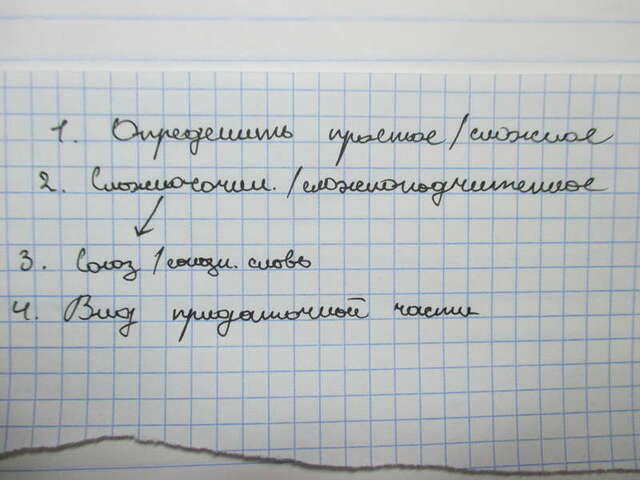 1. Определить простое/сложное
2. Сложносочин./сложноподчинённое
3. Союз/союзн. слово
4. Вид придаточной части